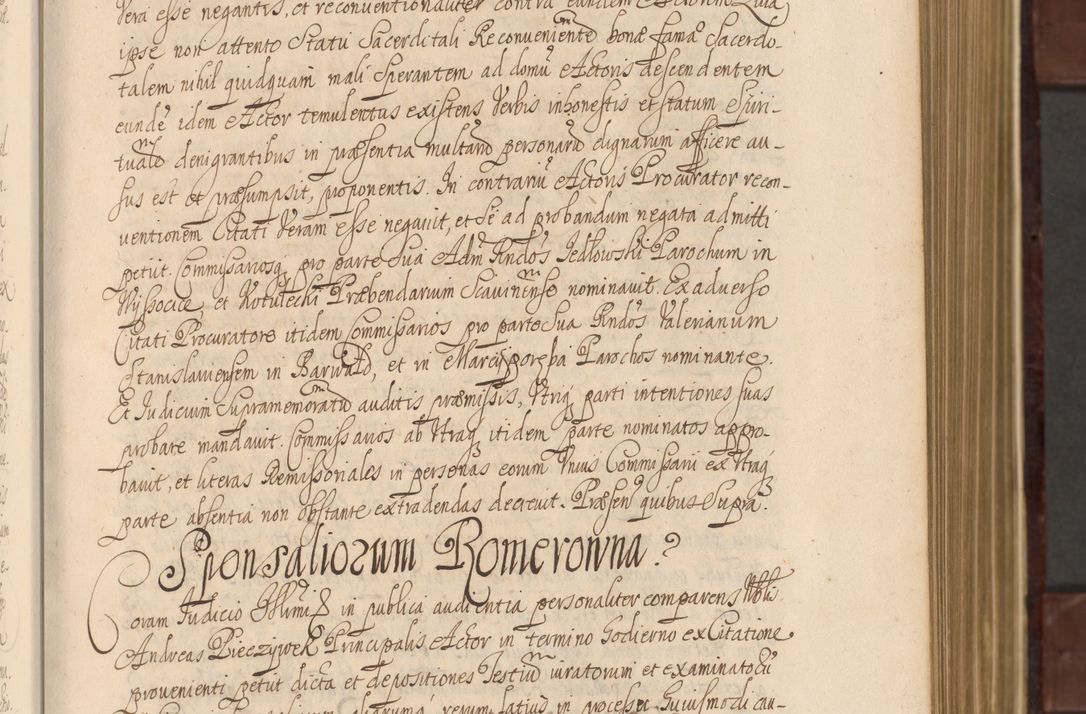 Vera esse negantis, et reconventionaliter contra eundem Actorem Quia
ipse non attento Statu Sacerdotali Reconveniente bonæ famæ Sacerdo-
talem nihil quidquam mali Sperantem ad domũ Actoris descendentem
eundẽ idem Actor temulentus existens Verbis inhonestis et statum Spiri-
tualẽ denigrantibus in præsentia multarũ personarũ dignarum afficere au-
sus est et præsumpsit, proponentis. In contrariũ Actoris Procurator recon-
ventionem Citati Veram esse negavit, et Se ad probandum negata admitti
petiit. Commissariosq pro parte Sua Adm Rndos Jedlowski Parochum in
Wyssocice, et Kotulecki Præbendarium Scavinense nominavit. Ex adverso
Citati Procuratore itidem Commissarios pro parte Sua Rndos Valerianum
Stanislaviensem in Barwałd, et in Marcyporęba Parochos nominante.
Et Judicium Supramemoratũ auditis præmissis, Utriq parti intentiones suas
probare mandavit. Commissarios ab Utraq itidem parte nominatos appro-
bavit, et literas Remissoriales in personas eorum Unius Commissarii ex Utraq
parte absentia non obstante extradendas decrevit. Præsen quibus Supra.
Sponsaliorum Romerowna.
Coram Judicio Illmi in publica audientia personaliter comparens Nblis
Andreas Pieczywek Principalis Actor in termino hodierno ex Citatione
provenienti petiit dicta et depositiones Testiũ iuratorum et examinatorũ
rerum latius in processu huiusmodi cau-